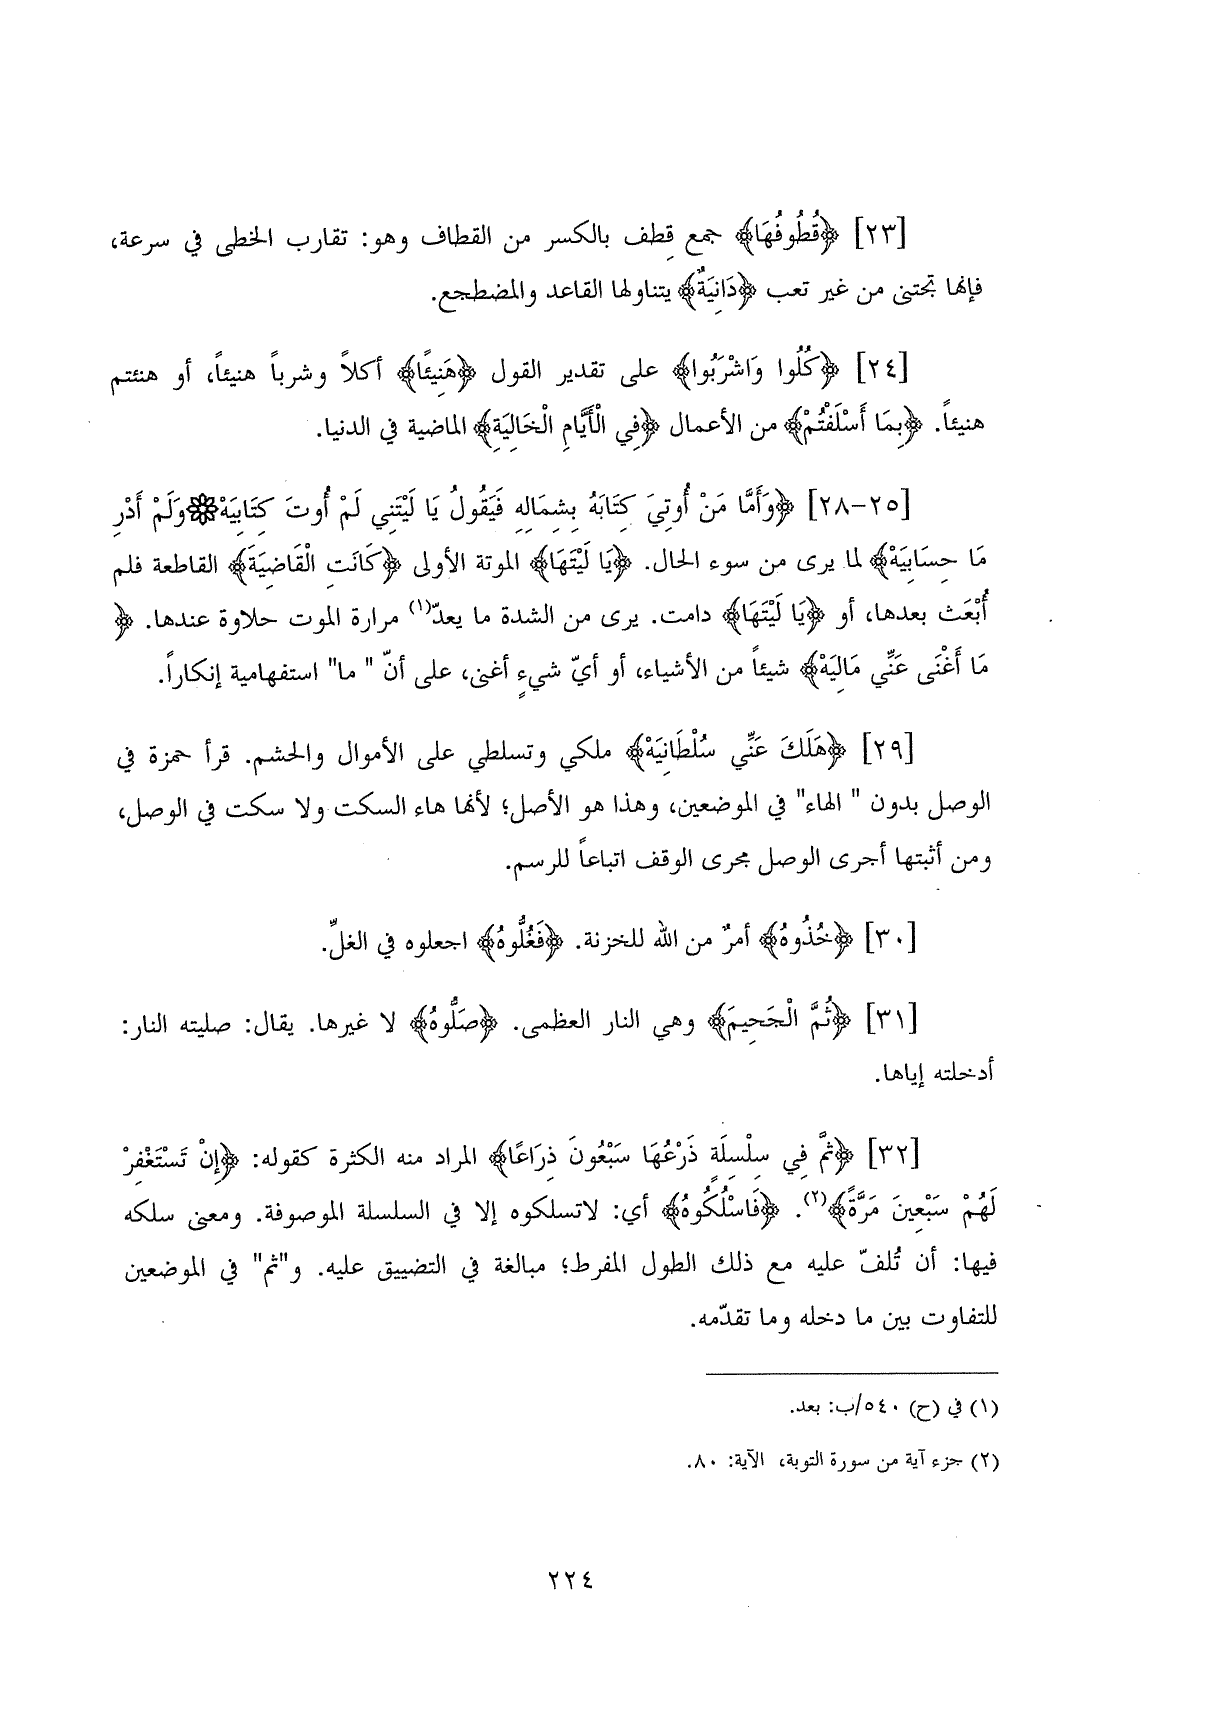 [٢٣] ﴿قُطُوفُهَا﴾ جمع قِطف بالكسر من القطاف وهو: تقارب الخطى في سرعة،
فإنها تجتنى من غير تعب ﴿دَانِيَةٌ﴾ يتناولها القاعد والمضطجع.
[٢٤] ﴿كُلُوا وَاشْرَبُوا﴾ على تقدير القول ﴿هَنِيئًا﴾ أكلاً وشرباً هنيئاً، أو هنئتم
هنيئاً. ﴿بِمَا أَسْلَفْتُمْ﴾ من الأعمال ﴿فِي الْأَيَّامِ الْخَالِيَةِ﴾ الماضية في الدنيا.
[٢٥-٢٨] ﴿وَأَمَّا مَنْ أُوتِيَ كِتَابَهُ بِشِمَالِهِ فَيَقُولُ يَا لَيْتَنِي لَمْ أُوتَ كِتَابِيَهْ۞وَلَمْ أَدْرِ
مَا حِسَابِيَهْ﴾ لما يرى من سوء الحال. ﴿يَا لَيْتَهَا﴾ الموتة الأولى ﴿كَانَتِ الْقَاضِيَةَ﴾ القاطعة فلم
أُبْعَث بعدها، أو ﴿يَا لَيْتَهَا﴾ دامت. يرى من الشدة ما يعدّ(١) مرارة الموت حلاوة عندها. ﴿
مَا أَغْنَى عَنِّي مَالِيَهْ﴾ شيئاً من الأشياء، أو أيّ شيءٍ أغنى، على أنّ " ما" استفهامية إنكاراً.
[٢٩] ﴿هَلَكَ عَنِّي سُلْطَانِيَهْ﴾ ملكي وتسلطي على الأموال والحشم. قرأ حمزة في
الوصل بدون " الهاء" في الموضعين، وهذا هو الأصل؛ لأنها هاء السكت ولا سكت في الوصل،
ومن أثبتها أجرى الوصل مجرى الوقف اتباعاً للرسم.
[٣٠] ﴿خُذُوهُ﴾ أمرٌ من الله للخزنة. ﴿فَغُلُّوهُ﴾ اجعلوه في الغلِّ.
[٣١] ﴿ثُمَّ الْجَحِيمَ﴾ وهي النار العظمى. ﴿صَلُّوهُ﴾ لا غيرها. يقال: صليته النار:
أدخلته إياها.
[٣٢] ﴿ثمَّ فِي سِلْسِلَةٍ ذَرْعُهَا سَبْعُونَ ذِرَاعًا﴾ المراد منه الكثرة كقوله: ﴿إِنْ تَسْتَغْفِرْ
لَهُمْ سَبْعِينَ مَرَّةً﴾(٢). ﴿فَاسْلُكُوهُ﴾ أي: لاتسلكوه إلا في السلسلة الموصوفة. ومعنى سلكه
فيها: أن تُلفّ عليه مع ذلك الطول المفرط؛ مبالغة في التضييق عليه. و"ثم" في الموضعين
للتفاوت بين ما دخله وما تقدّمه.
(١) في (ح) ٥٤٠/ب: بعد.
(٢) جزء آية من سورة التوبة، الآية: ٨٠.
٢٢٤